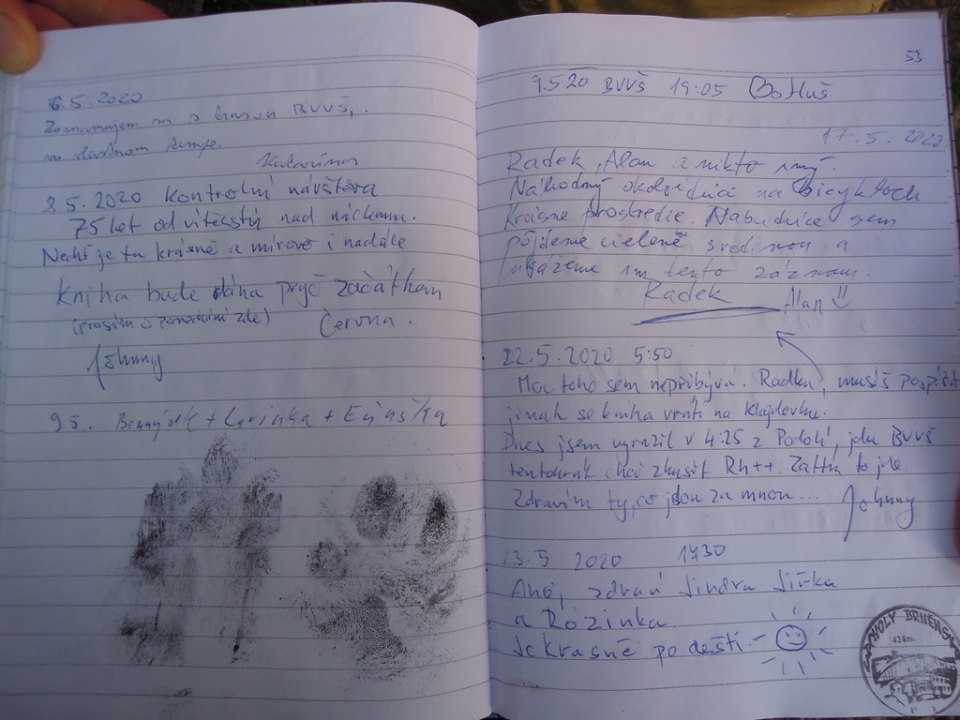 6.5.2020
Zoznamujem sa s krasou BVVŠ,
vo vlastnom tempe.
Katarína
8.5.2020 Kontrolní návštěva
75 let od vítěství nad náckama.
Nechť je tu krásně a mírově i nadále
Kniha bude dána pryč začátkem
(prosím o zde) června.
Johnny
9.5. + +
53
9.5.20 BVVŠ 19:05 Bohuš
17.5.2020
Radek, Alan a nikto iný.
Náhodný okoloidúci na bicykloch
Krásne prostredie. Nabudúce sem
pôjdeme cielene s rodinou a
ukážeme im tento záznam.
Radek Alan
22.5.2020 5:50
Moc toho sem nepřibývá. Radku, musíš pospíšit
jinak se kniha vrátí na Klajdovku.
Dnes jsem vyrazil v 4:25 z Podolí, jdu BVVŠ
tentokrát chci zkusit Rh++. Zatím to jde.
Zdravím ty, co jdou za mnou...
Johnny
23.5 2020 1730
Ahoj, zdraví Jindra Jiřka
a Rozinka.
Je krásně po dešti
VRCHOLY BRNĚNSKA
424m